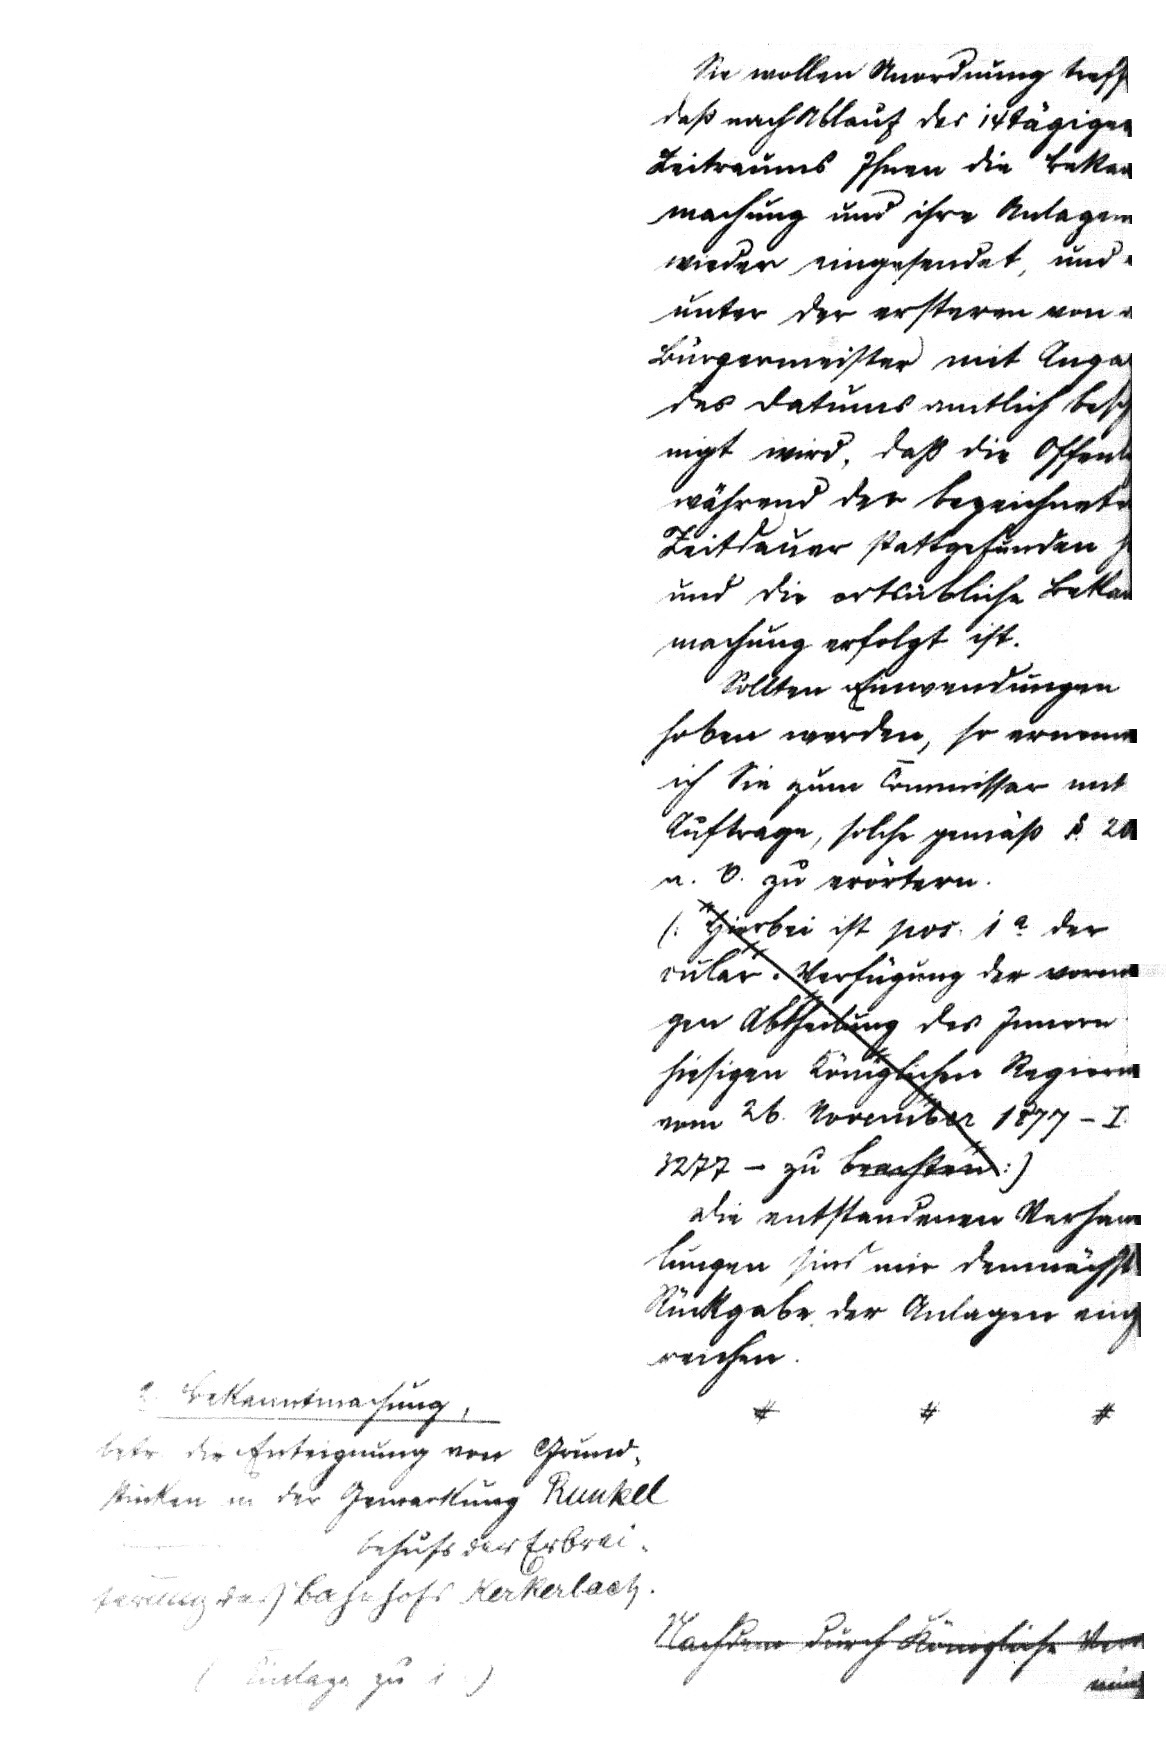 Sie wollen Anordnung treff
daß nach Ablauf des 14tägigen
Zeitraums Ihnen die Bekan
machung und ihre Anlagen
wieder eingesendet, und
unter der ersteren von
Bürgermeister mit Anga
des Datums amtlich besch
nigt wird, daß die Offenl
während der bezeichnete
Zeitdauer stattgefunden h
und die ortsübliche Bekan
machung erfolgt ist.
Sollten Einwendungen
hoben werden, so ernenn
ich Sie zum Commissar mit
Auftrage, solche gemäß §. 20
a. O. zu erörtern.
(: Hierbei ist pos. 1 a der
cular-Verfügung der vorm
gen Abtheilung des Innern
hiesigen Königlichen Regieru
vom 26. November 1877 – I.
3277 – zu beachten :)
Die entstandenen Verhan
lungen sind mir demnächst
Rückgabe der Anlagen eing
reichen.
# # #
2. Bekanntmachung,
betr. die Enteignung von Grund-
stücken in der Gemarkung Runkel
behufs der Erbrei-
terung des Bahnhofs Kerkerbach.
( Anlage zu 1 )
Nachdem durch Königliche Ver